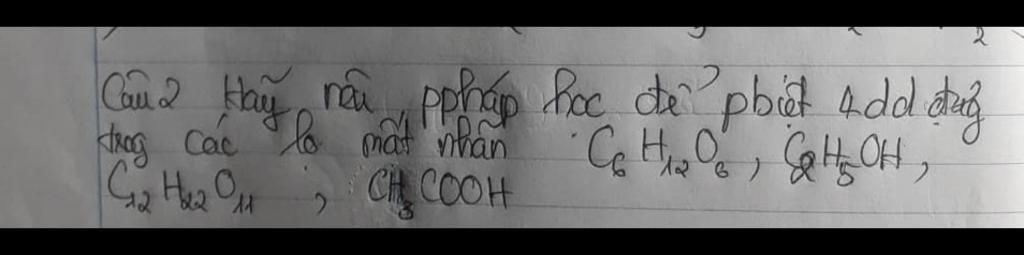 Câu 2 Hãy nêu ppháp học để pbiệt 4 dd đựng
trong các lọ mất nhãn C₆H₁₂O₆, C₂H₅OH,
C₁₂H₂₂O₁₁, CH₃COOH